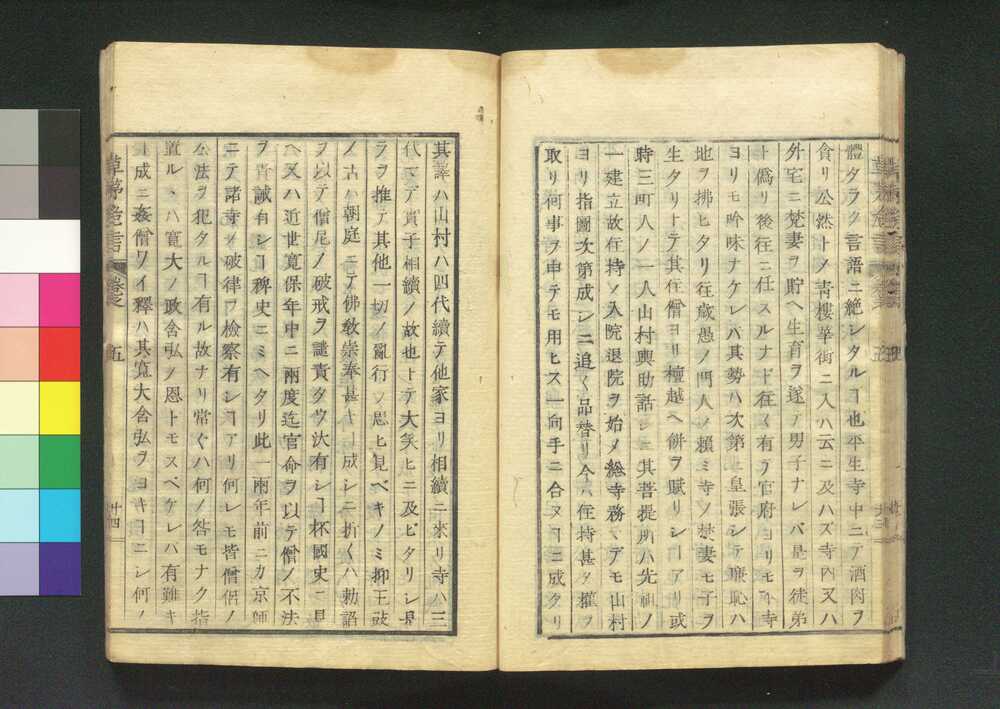 體タラク言語ニ絶シタルヿ也平生寺中ニテ酒肉ヲ
貪リ公然トメ青樓華街ニ入ハ云ニ及ハズ寺内又ハ
外宅ニ梵妻ヲ貯ヘ生育ヲ遂テ男子ナレバ是ヲ徒弟
ト僞リ後住ニ仕スルナド往々有テ官府ヨリモ寺
ヨリモ吟味ナケレバ其勢ハ次第ニ皇張シテ廉恥ハ
地ヲ拂ヒタリ往歳愚ノ門人ノ賴ミ寺ノ梵妻モ子ヲ
生タリトテ其住僧ヨリ檀越ヘ餅ヲ賦リシヿアリ或
時三町人ノ一人山村與助話シニ其菩提所ハ先祖ノ
一建立故住持ノ入院退院ヲ始メ総寺務マデモ山村
ヨリ指圖次第成シニ追々品替リ今ハ住持甚タ權ヲ
取リ何事ヲ申テモ用ヒス一向手ニ合ヌヿニ成タリ
其譯ハ山村ハ四代續テ他家ヨリ相續ニ來リ寺ハ三
代マデ實子相續ノ故也トテ大笑ヒニ及ヒタリシ是
ラヲ推テ其他一切ノ亂行ヲ思ヒ見ベキノミ抑王政
ノ古ハ朝庭ニテ佛敎崇奉甚キヿ成シニ折々ハ勅詔
ヲ以テ僧尼ノ破戒ヲ譴責タウ汰有シヿ杯國史ニ見
ヘ又ハ近世寬保年中ニ兩度迄官命ヲ以テ僧ノ不法
ヲ責誡有シヿ稗史ニミヘタリ此一兩年前ニカ京師
ニテ諸寺ノ破律ヲ檢察有シヿアリ何レモ皆僧侶ノ
公法ヲ犯タルヿ有ル故ナリ常々ハ何ノ咎モナク指
置ルヽハ寛大ノ政含弘ノ恩トモスベケレバ有難キ
成ニ姦僧ワイ釋ハ其寬大含弘ヲヨキヿニシ何ノ
草茅危言
卷之
五
廿四